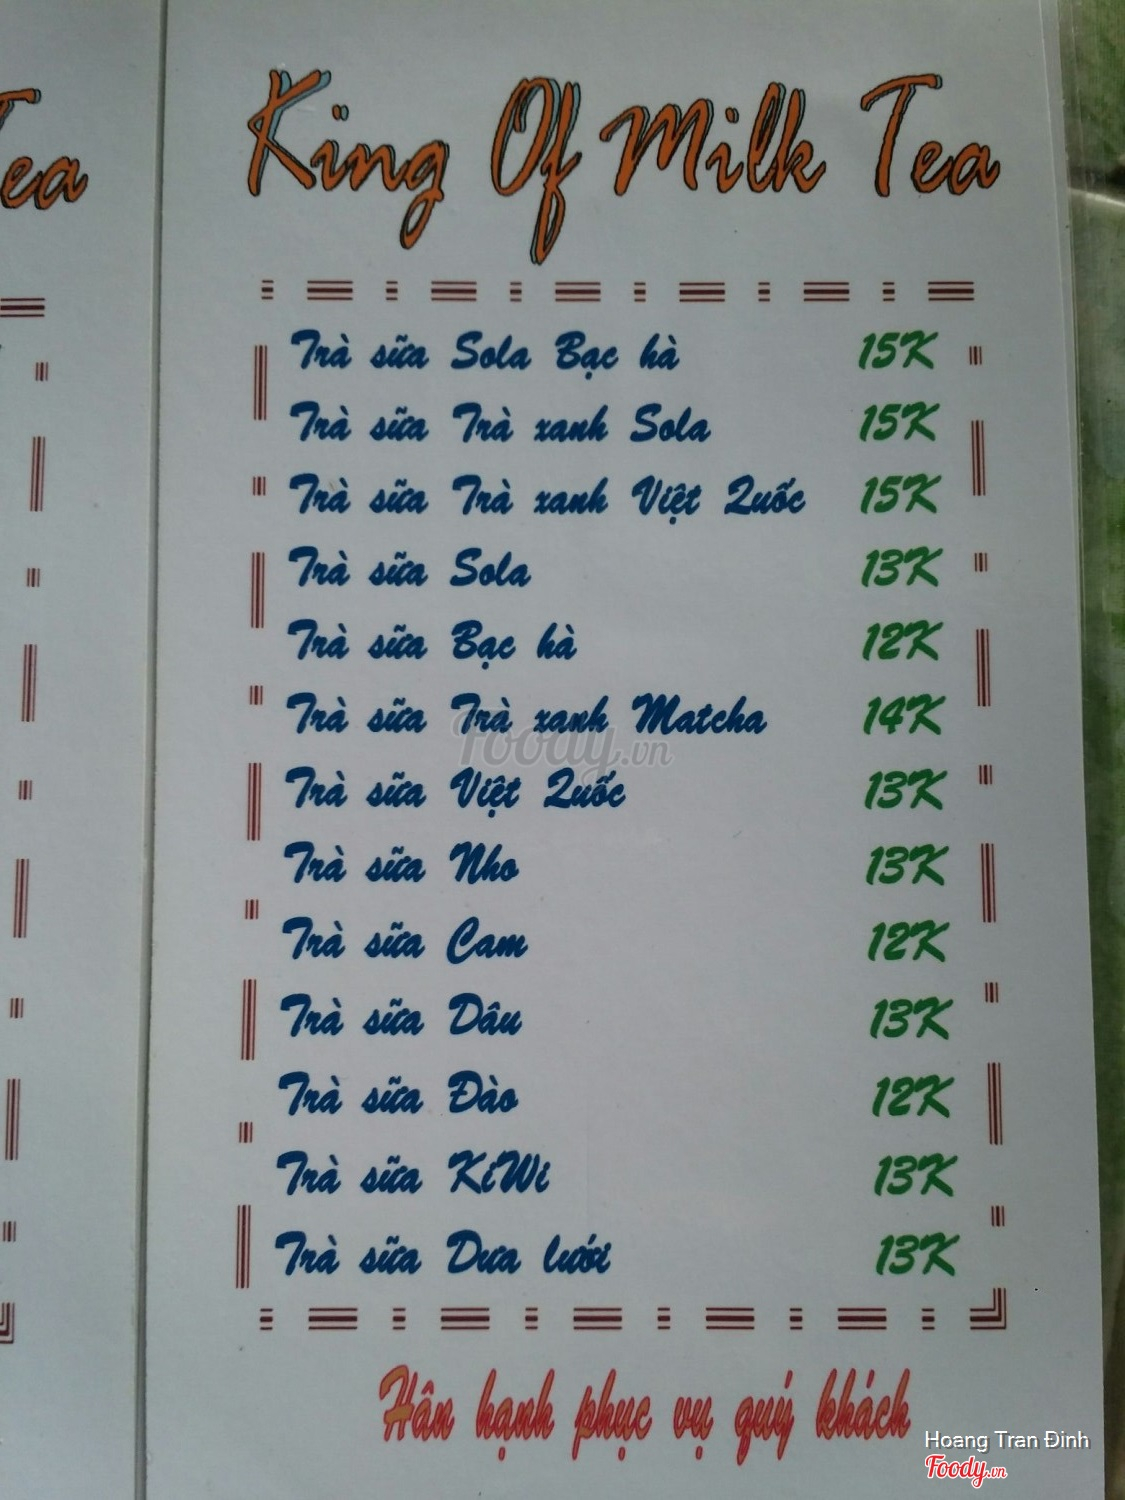 Tea
King Of Milk Tea
Trà sữa Sola Bạc hà 15K
Trà sữa Trà xanh Sola 15K
Trà sữa Trà xanh Việt Quốc 15K
Trà sữa Sola 13K
Trà sữa Bạc hà 12K
Trà sữa Trà xanh Matcha 14K
Foody.vn
Trà sữa Việt Quốc 13K
Trà sữa Nho 13K
Trà sữa Cam 12K
Trà sữa Dâu 13K
Trà sữa Đào 12K
Trà sữa KiWi 13K
Trà sữa Dưa lưới 13K
Hân hạnh phục vụ quý khách
Hoang Tran Đinh
Foody.vn